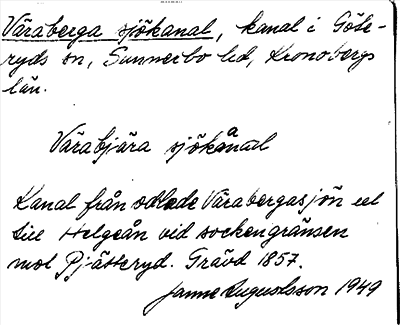 Väraberga sjökanal, kanal i Göte-
ryds sn, Sunnerbo hd, Kronobergs
län.
Värabjära sjökånal
Kanal från odlade Värabergasjön ut
till Helgeån vid sockengränsen
mot Pjätteryd. Grävd 1857.
Janne Augustsson 1949